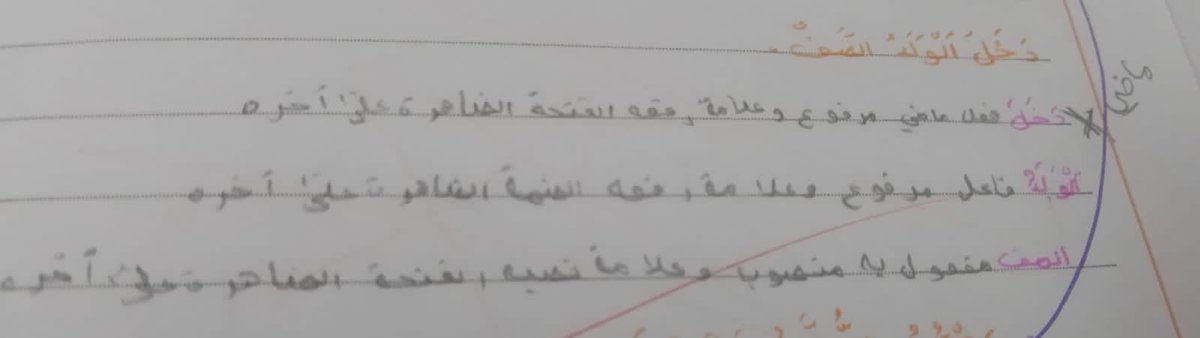 دَخَلَ اَلْوَلَدُ الصَّفَّ.
دَخَلَ فعل ماضي مرفوع وعلامة رفعه الفتحة الضاهرة على أخره
اَلْوَلَدُ فاعل مرفوع وعلامة رفعه الضمة الضاهرة على أخره
الصف مفعول به منصوب وعلامة نصبه الفتحة الضاهرة على أخره